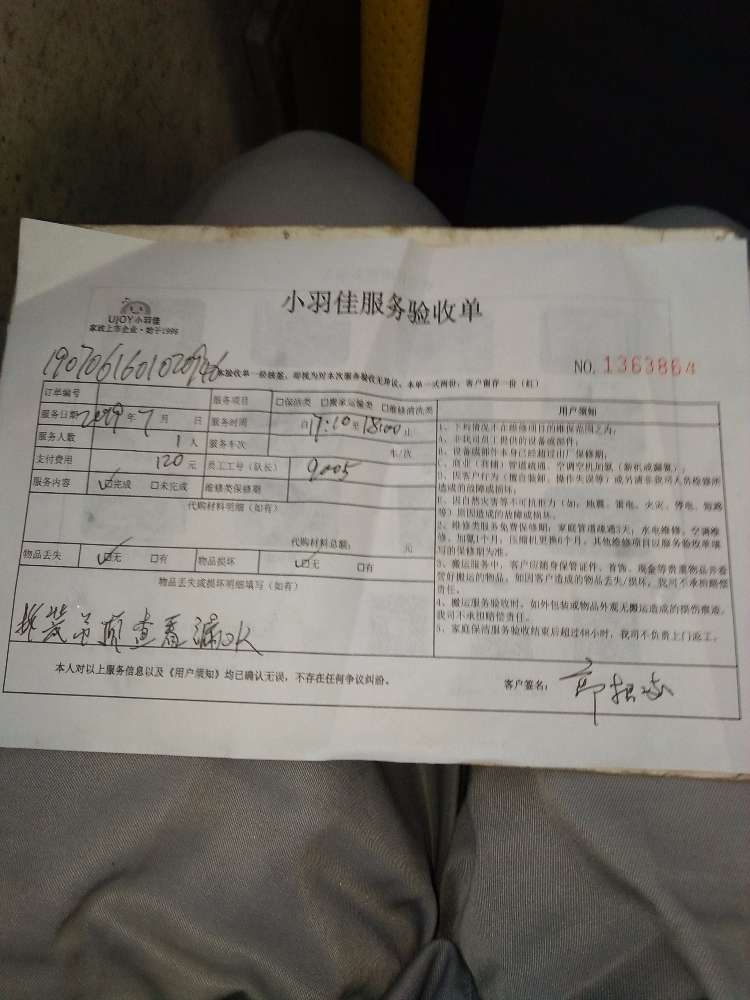 小羽佳服务验收单
UJOY小羽佳
家政上市企业·始于1996
本验收单一经签签,即视为对本次服务验收无异议。本单一式两份,客户留存一份(红)
NO. 1363864
订单编号 服务项目 □保洁类 □搬家运输类 □维修清洗类
服务日期 2019 年 7 月 日 服务时间 自 17:10 至 18:00 止
服务人数 1 人 服务车次 车/次
支付费用 120 元 员工工号(队长) 9005
服务内容 ☑完成 □未完成 维修类保修期
代购材料明细(如有)
代购材料总额: 元
物品丢失 ☑无 □有 物品损坏 ☑无 □有
物品丢失或损坏明细填写(如有)
拆装吊顶查看漏水
用户须知
1、下列情况不在维修项目的维保范围之内:
A、非我司员工提供的设备或部件;
B、设备或部件本身已经超过出厂保修期;
C、商业(商铺)管道疏通、空调空机加氟(新机或漏氟);
D、因客户行为(擅自装卸、操作失误等)或另请非我司人员检修所
造成的故障或损坏;
E、因自然灾害等不可抗拒力(如:地震、雷电、火灾、停电、短路
等)原因造成的故障或损坏。
2、维修类服务免费保修期:家庭管道疏通3天;水电维修、空调维
修、加氟1个月;压缩机更换6个月。其他维修项目以服务验收单填
写的保修期为准。
3、搬运服务中,客户应随身保管证件、首饰、现金等贵重物品并看
管好搬运的物品,如因客户造成的物品丢失/损坏,我司不承担赔偿
责任。
4、搬运服务验收时,如外包装或物品外观无搬运造成的损伤痕迹,
我司不承担赔偿责任。
5、家庭保洁服务验收结束后超过48小时,我司不负责上门返工。
本人对以上服务信息以及《用户须知》均已确认无误,不存在任何争议纠纷。
客户签名: